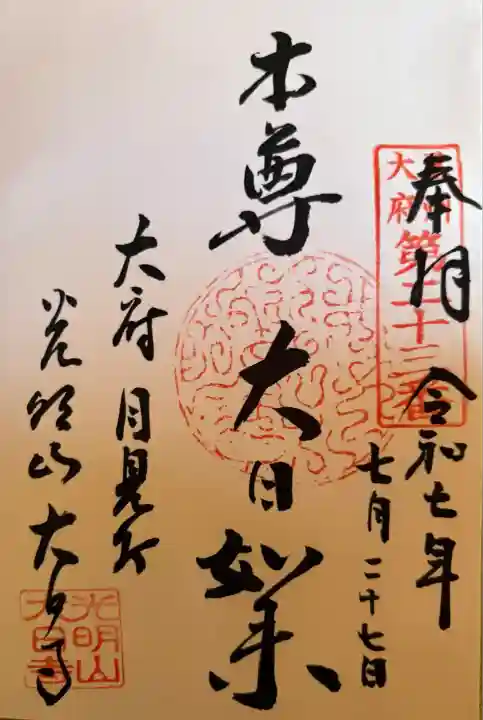 奉拝
令和七年
七月二十七日
大府
第二十三番
本尊 大日如来
大府 月見町
光明山 大日寺
光明山
大日寺